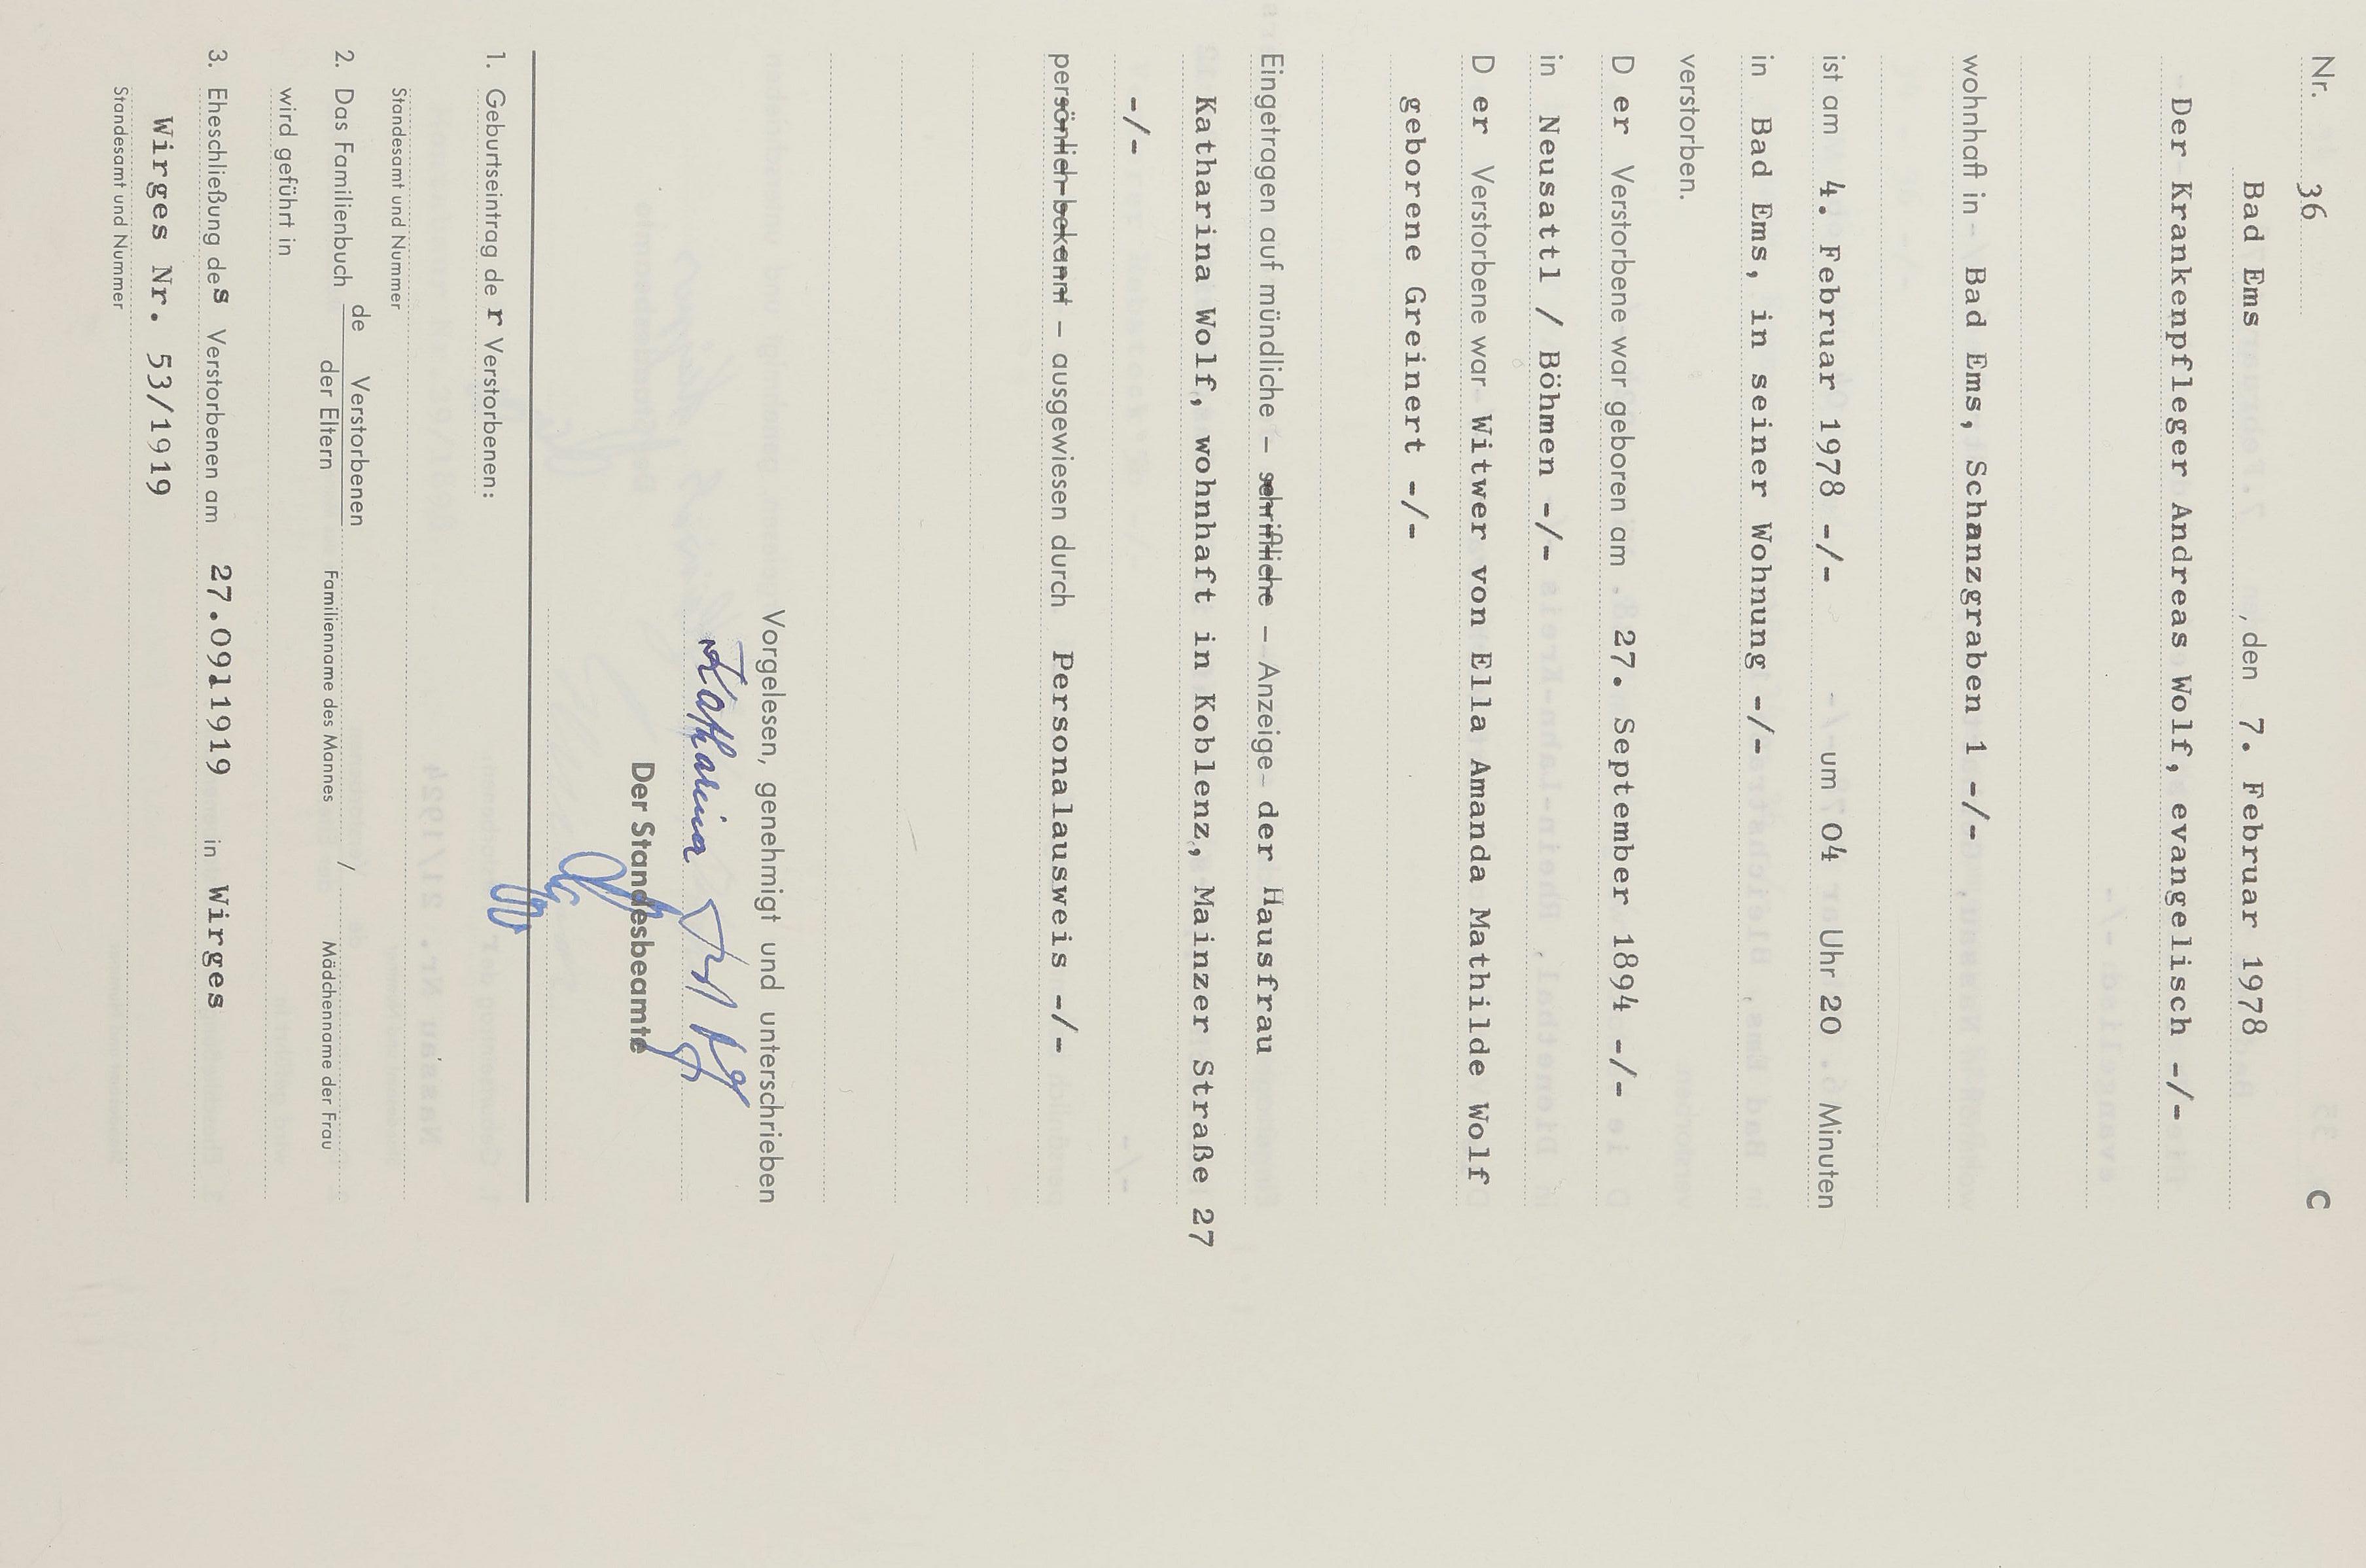 Nr. 36 C
Bad Ems , den 7. Februar 1978
Der Krankenpfleger Andreas Wolf, evangelisch -/-
wohnhaft in Bad Ems, Schanzgraben 1 -/-
ist am 4. Februar 1978 -/- um 04 Uhr 20 Minuten
in Bad Ems, in seiner Wohnung -/-
verstorben.
D er Verstorbene war geboren am 27. September 1894 -/-
in Neusattl / Böhmen -/-
D er Verstorbene war Witwer von Ella Amanda Mathilde Wolf
geborene Greinert -/-
Eingetragen auf mündliche – schriftliche – Anzeige der Hausfrau
Katharina Wolf, wohnhaft in Koblenz, Mainzer Straße 27
-/-
persönlich bekannt – ausgewiesen durch Personalausweis -/-
Vorgelesen, genehmigt und unterschrieben
Katharina Wolf
Der Standesbeamte
1. Geburtseintrag de r Verstorbenen:
Standesamt und Nummer
2. Das Familienbuch de Verstorbenen
der Eltern Familienname des Mannes / Mädchenname der Frau
wird geführt in
3. Eheschließung des Verstorbenen am 27.0911919 in Wirges
Wirges Nr. 53/1919
Standesamt und Nummer